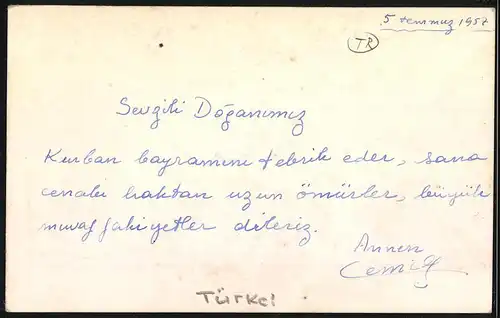 5 temmuz 1957
TR
Sevgili Doğanımız
Kurban bayramını tebrik eder, sana
cenabı haktan uzun ömürler, büyük
muvaffakiyetler dileriz.
Annen
Türkei